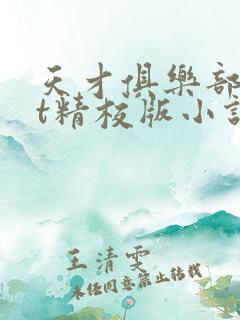 天才俱樂部
t精校版小說
王清雯
未经同意禁止转载